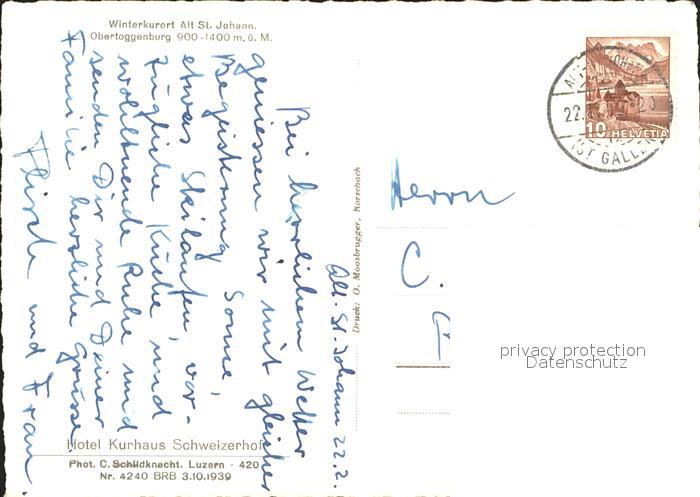 Winterkurort Alt St. Johann.
Obertoggenburg 900-1400 m. ü. M.
Alt. St. Johann 22.2.
Bei herrlichem Wetter
geniessen wir mit gleicher
Begeisterung Sonne,
etwas Skilaufen, vor-
zügliche Küche und
wohltuende Ruhe und
senden Dir und Deiner
Familie herzliche Grüsse.
und Frau.
Hotel Kurhaus Schweizerhof
Phot. C. Schildknecht, Luzern - 420
Nr. 4240 BRB 3.10.1939
Druck: O. Moosbrugger, Rorschach
Herrn
C.
10 HELVETIA
22.
(ST GALLEN)
privacy protection
Datenschutz